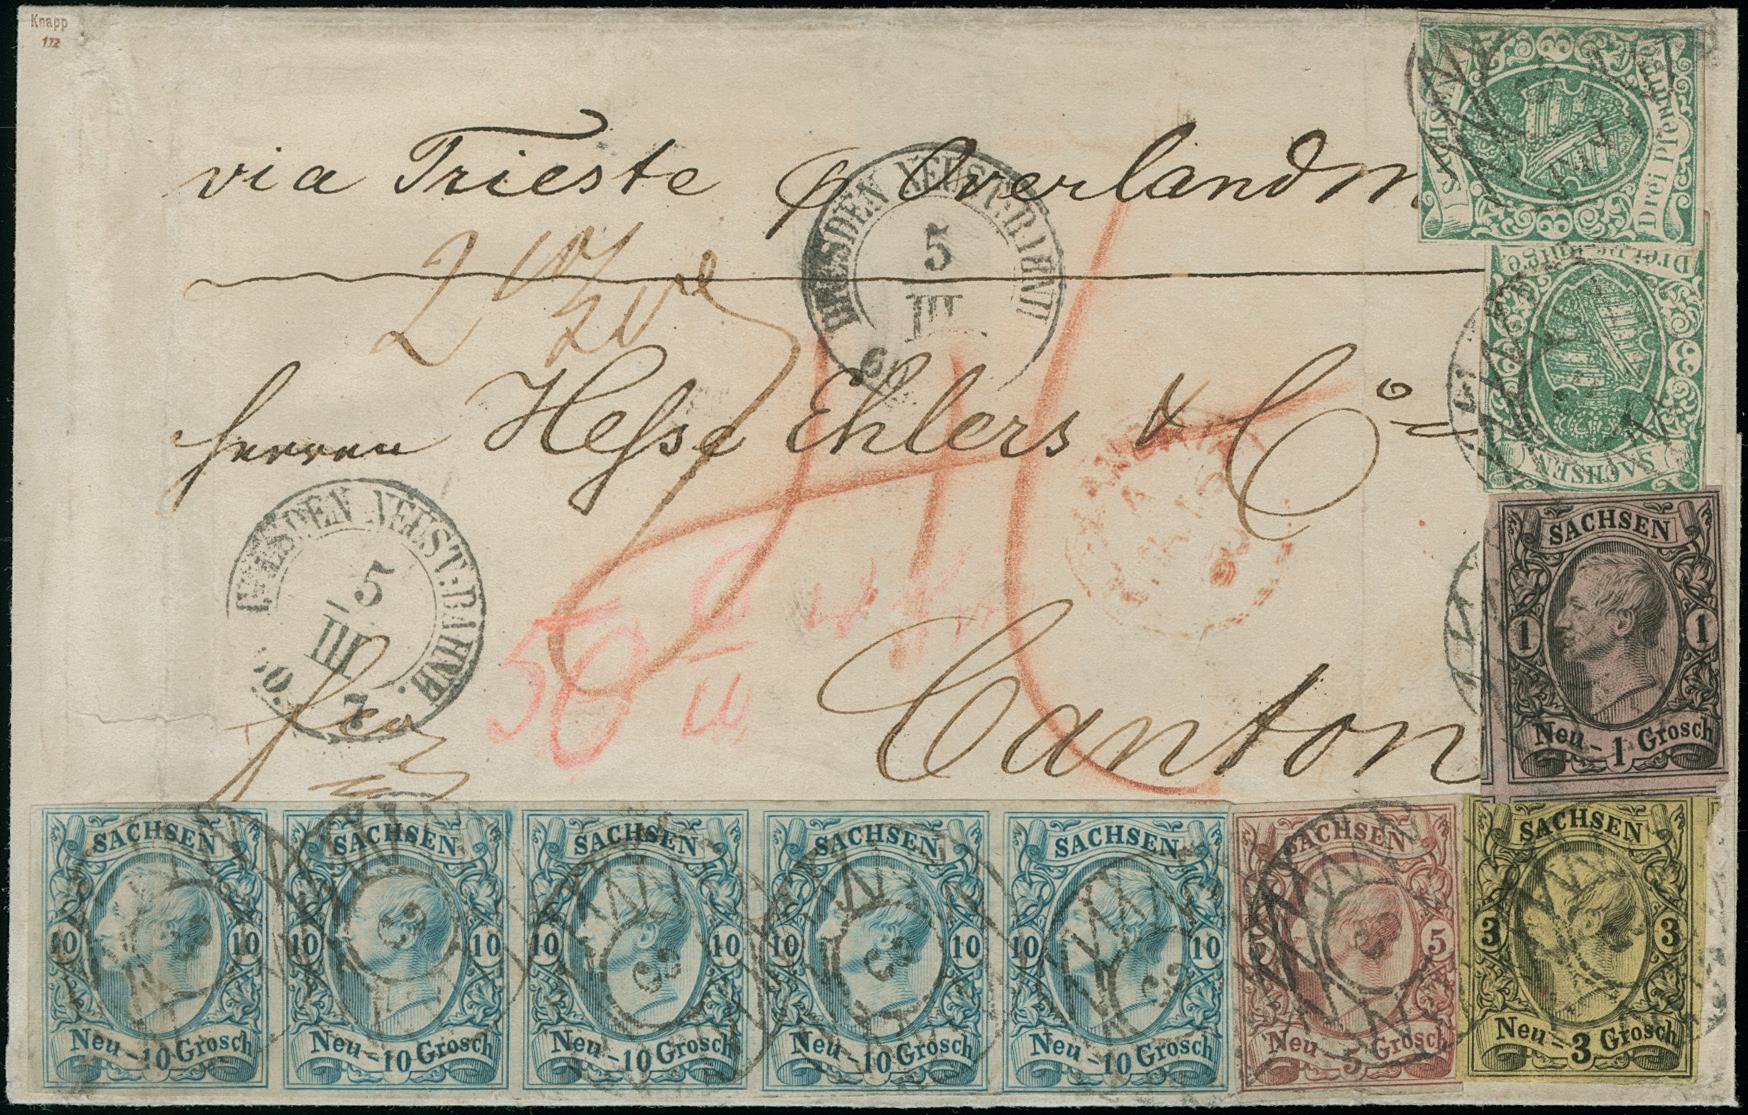 Knapp
172
via Trieste p Overlandm
Herren Hesse Ehlers & Co
Canton
DRESDEN NEUST: BAHNH.
5
III
60.
DRESDEN NEUST: BAHNH.
5
III
60.
7
Drei Pfennige
3
SACHSEN
Drei Pfennige
3
SACHSEN
SACHSEN
1 1
Neu-1 Grosch
SACHSEN
10 10
Neu-10 Grosch
SACHSEN
10 10
Neu-10 Grosch
SACHSEN
10 10
Neu-10 Grosch
SACHSEN
10 10
Neu-10 Grosch
SACHSEN
10 10
Neu-10 Grosch
SACHSEN
5 5
Neu-5 Grosch
SACHSEN
3 3
Neu-3 Grosch